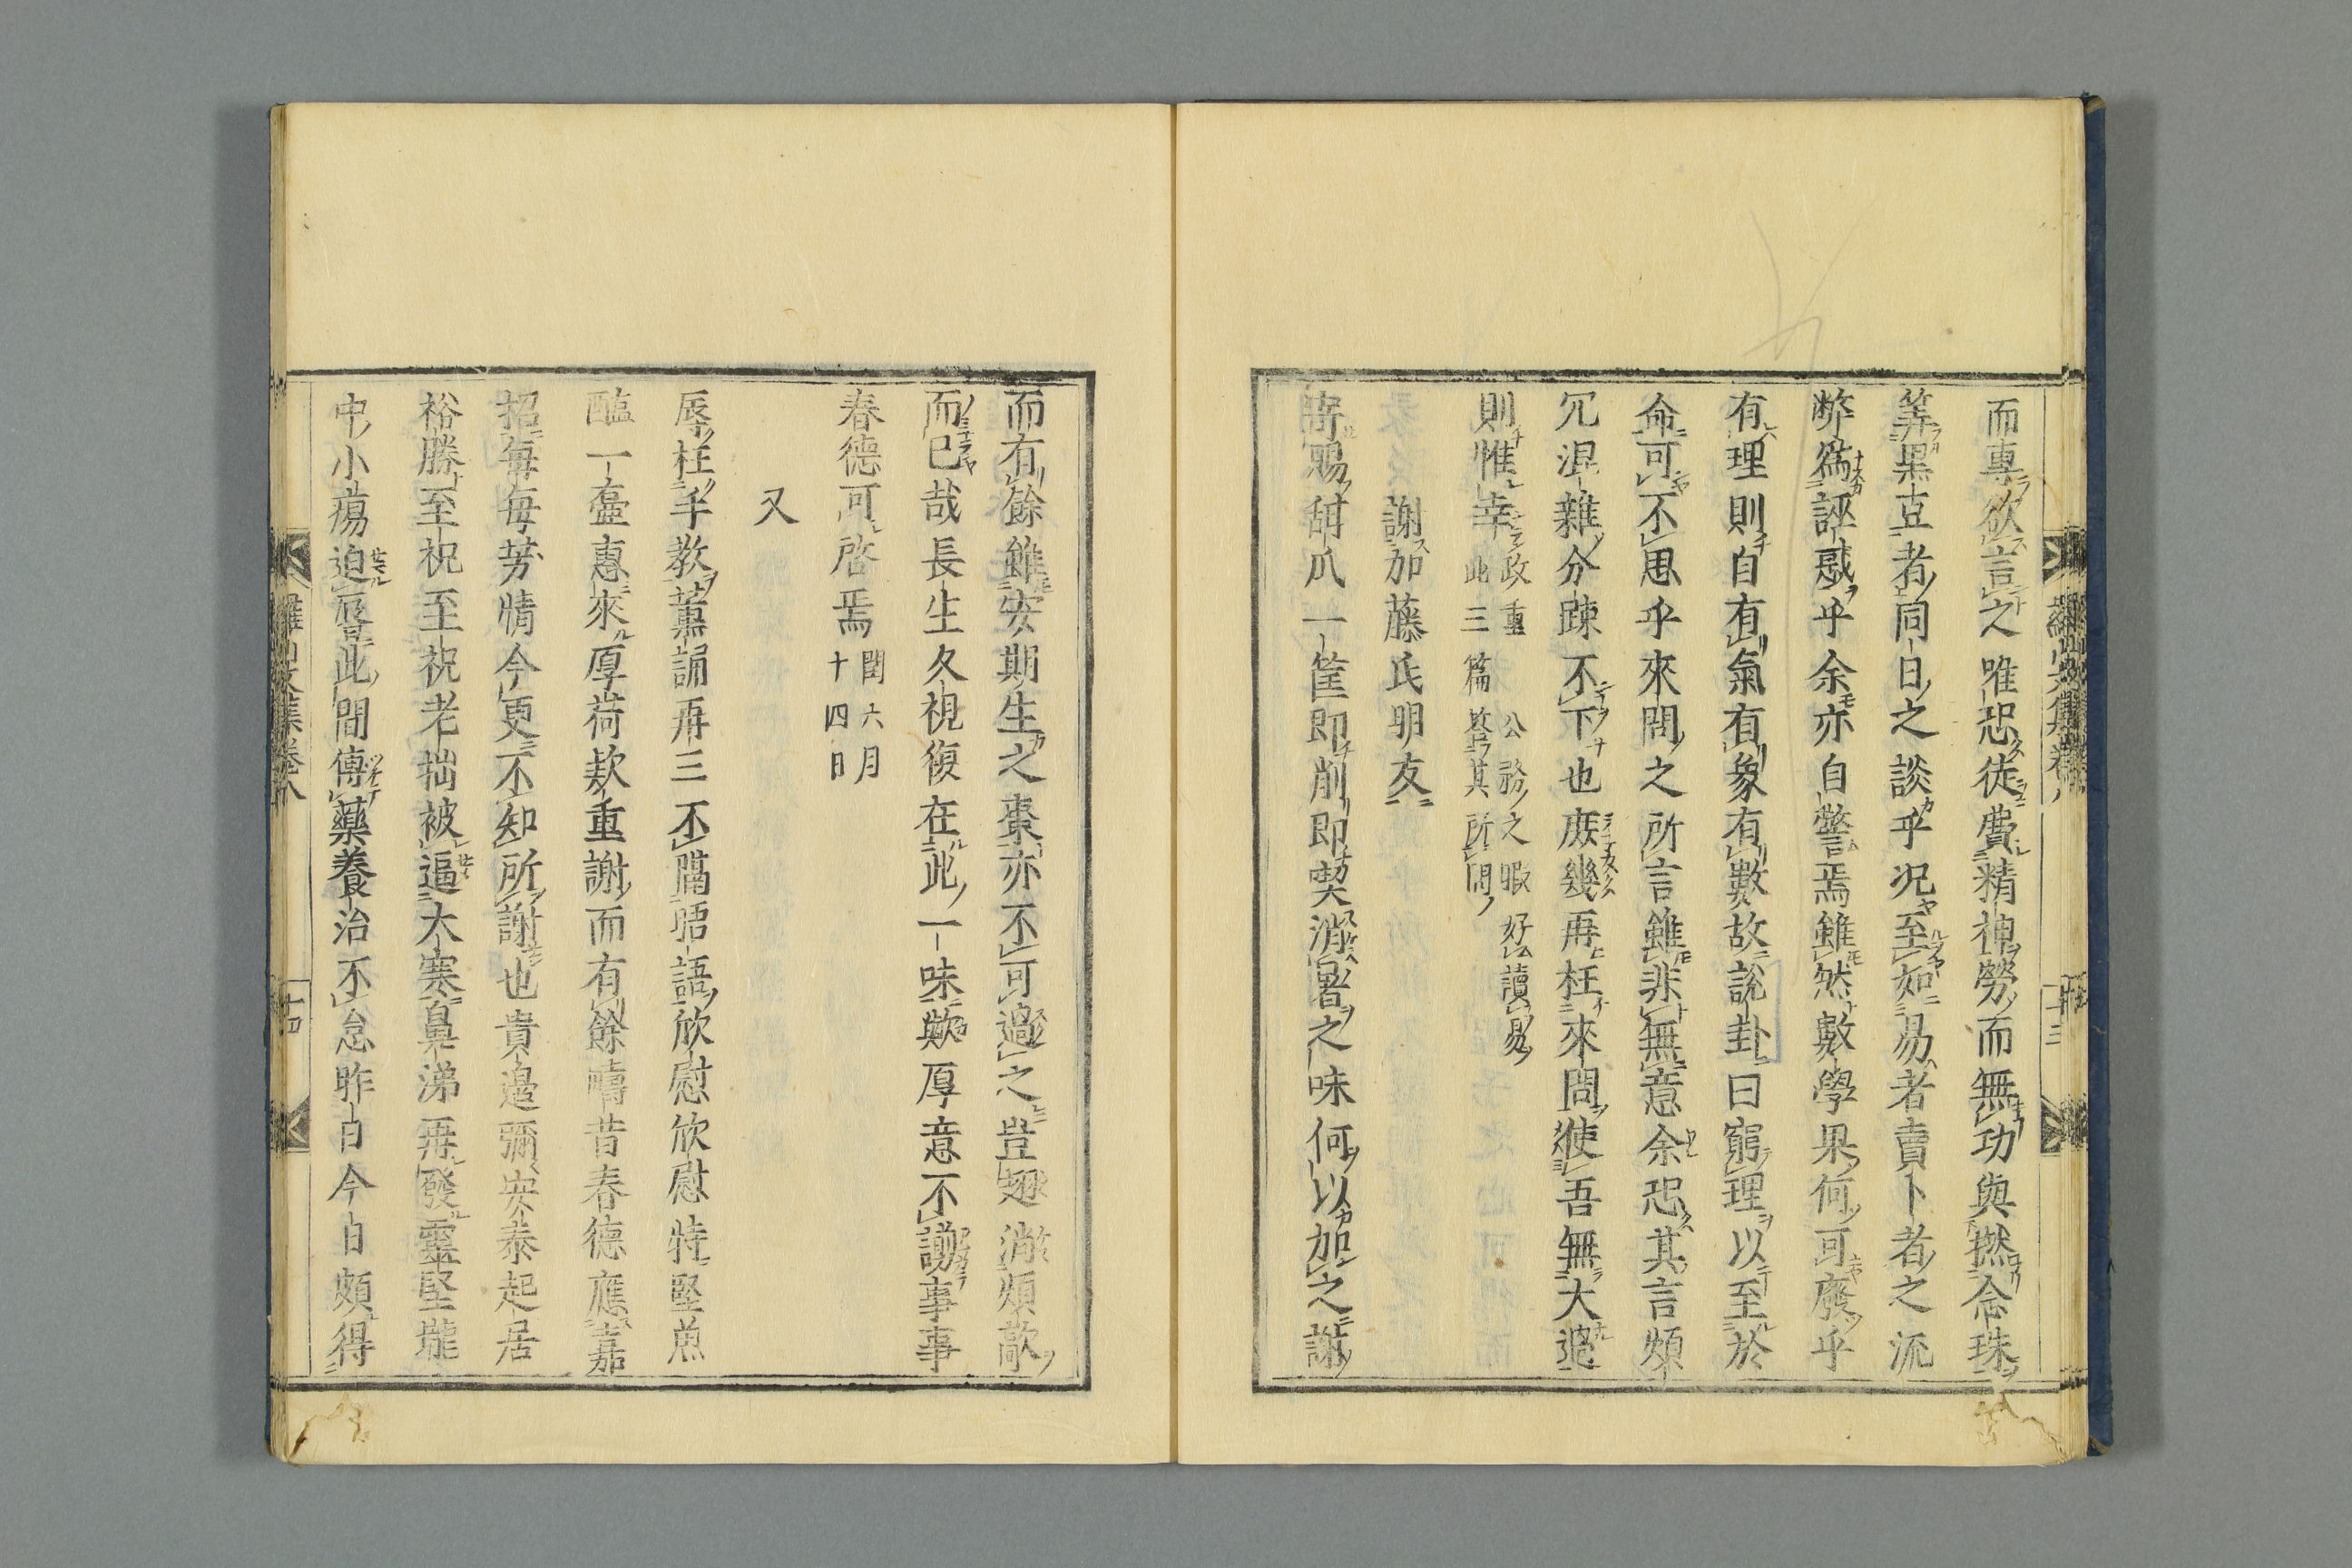 而專欲言之唯恐徒費精神勞而無功與撚念珠
筭黒豆者同日之談乎况至如易者賣卜者之流
弊爲誣惑乎余亦自警焉雖然斆學果何可廢乎
有理則自有氣有象有數故說卦曰窮理以至於
命可不思乎來問之所言雖非無意余恐其言煩
冗混雜分踈不下也庶幾再枉來問使吾無大過
則惟幸政重公務之暇好讀易
此三篇答其所問
謝加藤氏明友
寄賜甜瓜一筐即削即喫潑暑之味何以加之謝
而有餘雖安期生之棗亦不可過之豈翅消煩歊
而已哉長生久視復在此一味歟厚意不謝事事
春德可啓焉閏六月
十四日
又
辱枉手教薫誦再三不隔晤語欣慰欣慰特堅魚
醢一壺惠來厚荷欵重謝而有餘嚮昔春德應嘉
招每每芳情今更不知所謝也貴邊彌安泰起居
裕勝至祝至祝老拙被逼大寒鼻涕再發靈堅壠
中小蕩迫辱此間傳藥養治不怠昨日今日頗得
羅山文集卷八
十三
羅山文集卷八
十四